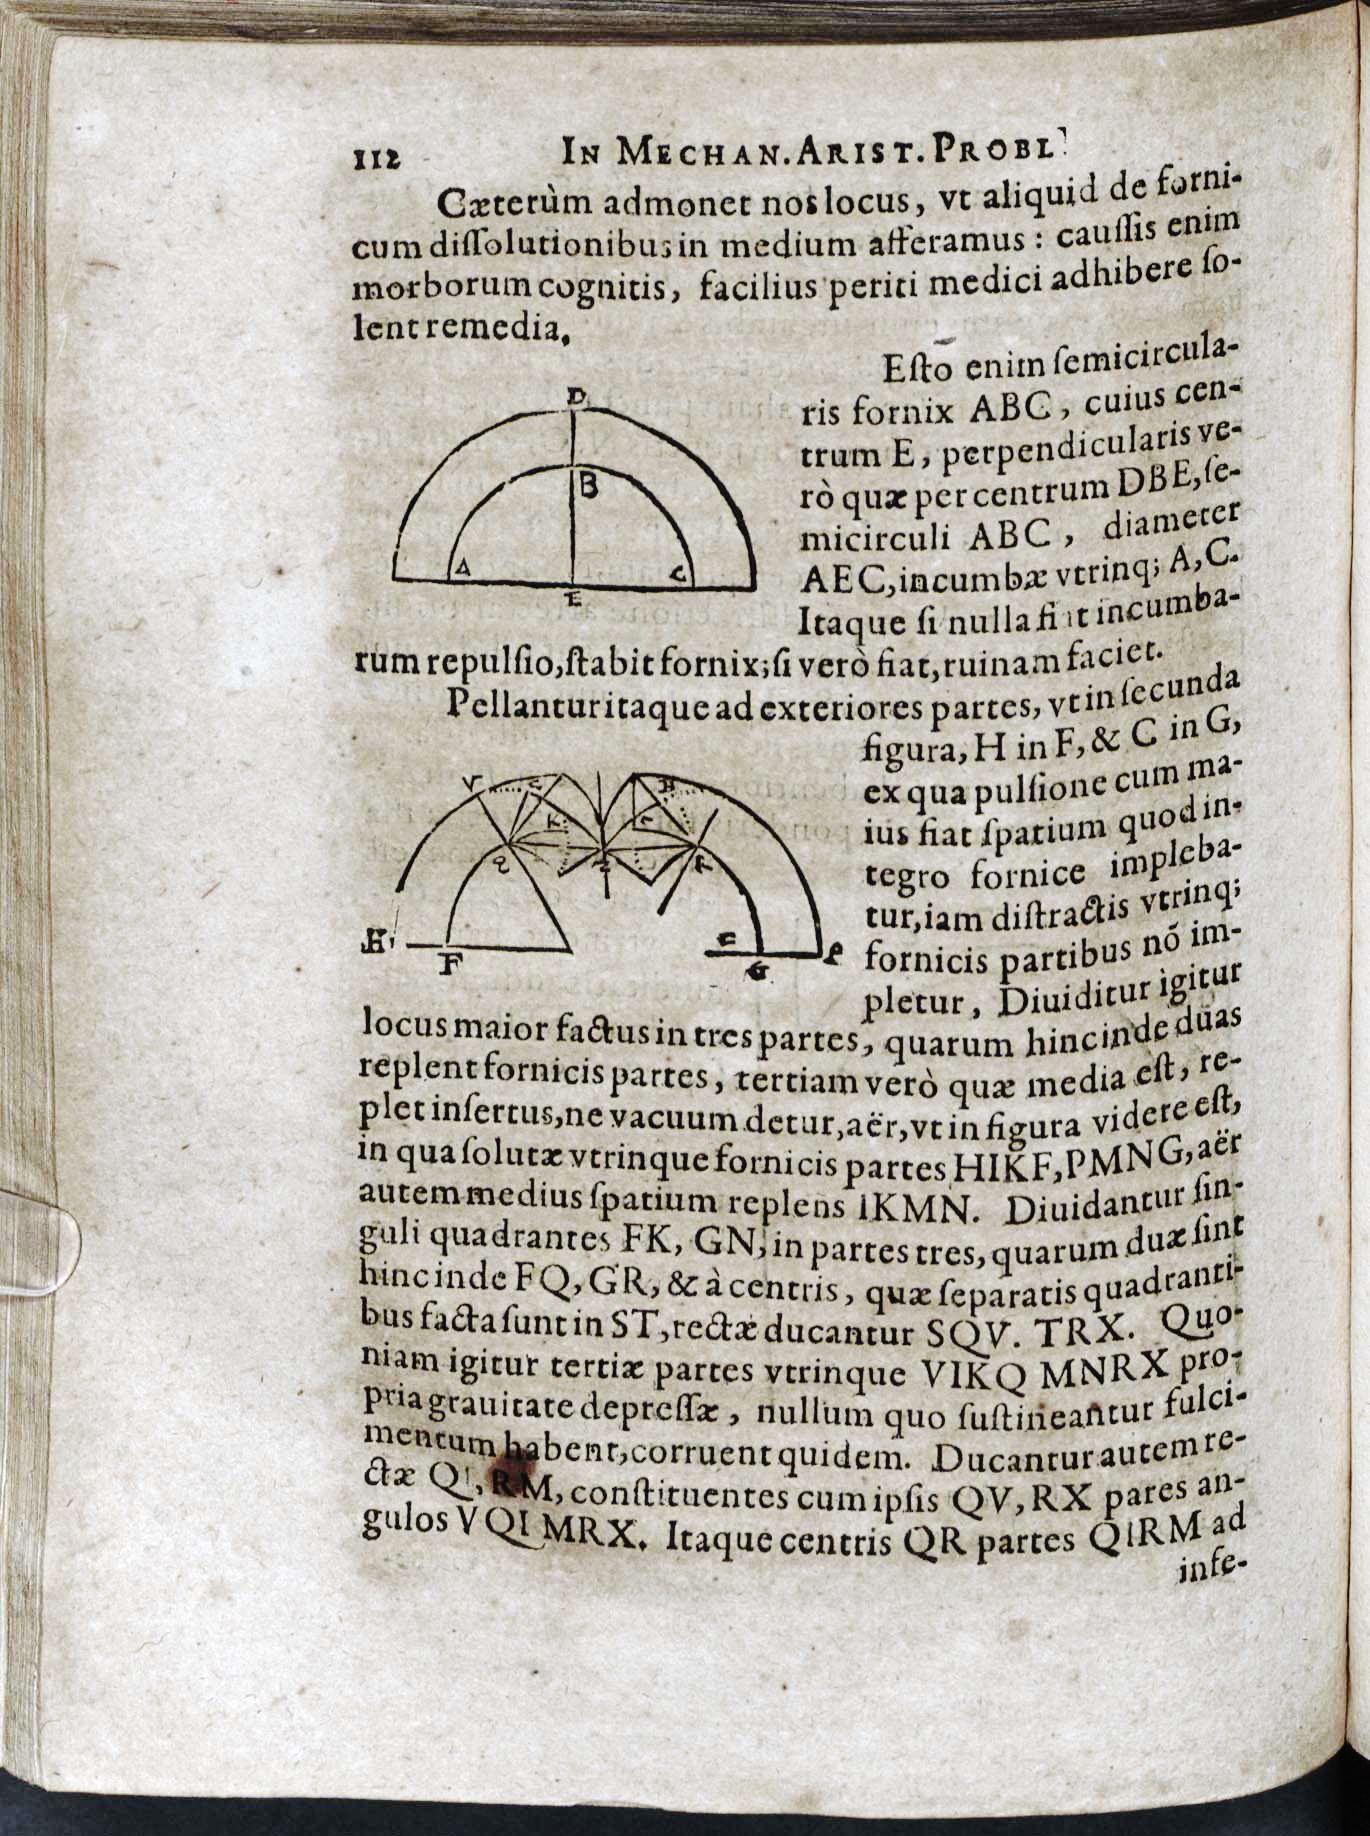 112 IN MECHAN. ARIST. PROBL
Cæterùm admonet nos locus, vt aliquid de forni-
cum dissolutionibus in medium afferamus : caussis enim
morborum cognitis, facilius periti medici adhibere so-
lent remedia.
Esto enim semicircula-
ris fornix ABC, cuius cen-
trum E, perpendicularis ve-
rò quæ per centrum DBE, se-
micirculi ABC, diameter
AEC, incumbæ vtrinq; A, C.
Itaque si nulla fiat incumba-
D
B
A
C
E
rum repulsio, stabit fornix; si verò fiat, ruinam faciet.
Pellantur itaque ad exteriores partes, vt in secunda
figura, H in F, & C in G,
ex qua pulsione cum ma-
ius fiat spatium quod in-
tegro fornice impleba-
tur, iam distractis vtrinq;
fornicis partibus nõ im-
pletur, Diuiditur igitur
V
K
H
F
G
P
locus maior factus in tres partes, quarum hinc inde duas
replent fornicis partes, tertiam verò quæ media est, re-
plet insertus, ne vacuum detur, aër, vt in figura videre est,
in qua solutæ vtrinque fornicis partes HIKF, PMNG, aër
autem medius spatium replens IKMN. Diuidantur sin-
guli quadrantes FK, GN, in partes tres, quarum duæ sint
hinc inde FQ, GR, & à centris, quæ separatis quadranti-
bus facta sunt in ST, rectæ ducantur SQV. TRX. Quo-
niam igitur tertiæ partes vtrinque VIKQ MNRX pro-
pria grauitate depressæ, nullum quo sustineantur fulci-
mentum habent, corruent quidem. Ducantur autem re-
ctæ QI, RM, constituentes cum ipsis QV, RX pares an-
gulos VQI MRX. Itaque centris QR partes QIRM ad
infe-